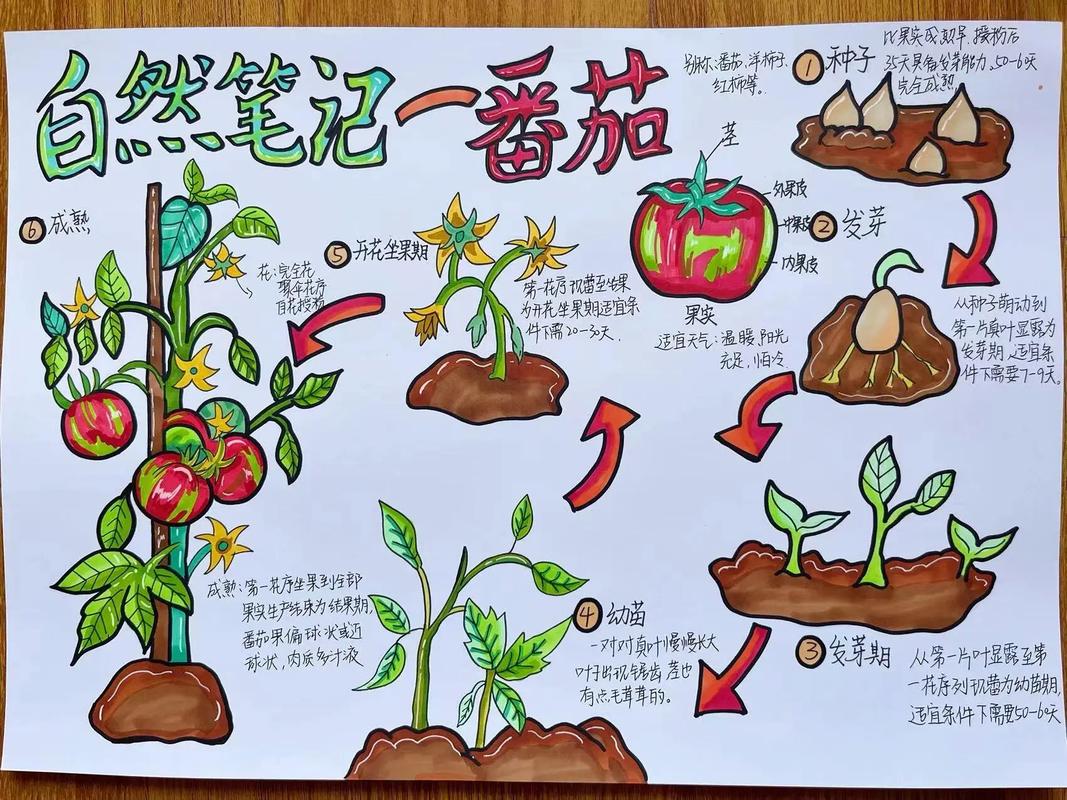 自然笔记一番茄
别称:番茄、洋柿子、
红柿等。
①种子
比果实成熟早,授粉后
35天具备发芽能力、50-60天
完全成熟。
茎
外果皮
中果皮
内果皮
果实
适宜天气:温暖、阳光
充足,怕冷
②发芽
从种子萌动到
第一片真叶显露为
发芽期,适宜条
件下需要7-9天。
③发芽期
从第一片叶显露至第
一花序列现蕾为幼苗期,
适宜条件下需要50-60天
④幼苗
一对对真叶慢慢长大
叶子出现锯齿,茎也
有点毛茸茸的。
⑤开花坐果期
第一花序现蕾至坐果
为开花坐果期适宜条
件下需20-30天.
⑥成熟
花:完全花
聚伞花序
自花授粉
成熟:第一花序坐果到全部
果实生产结束为结果期,
番茄果扁球状或近
球状,肉质多汁液